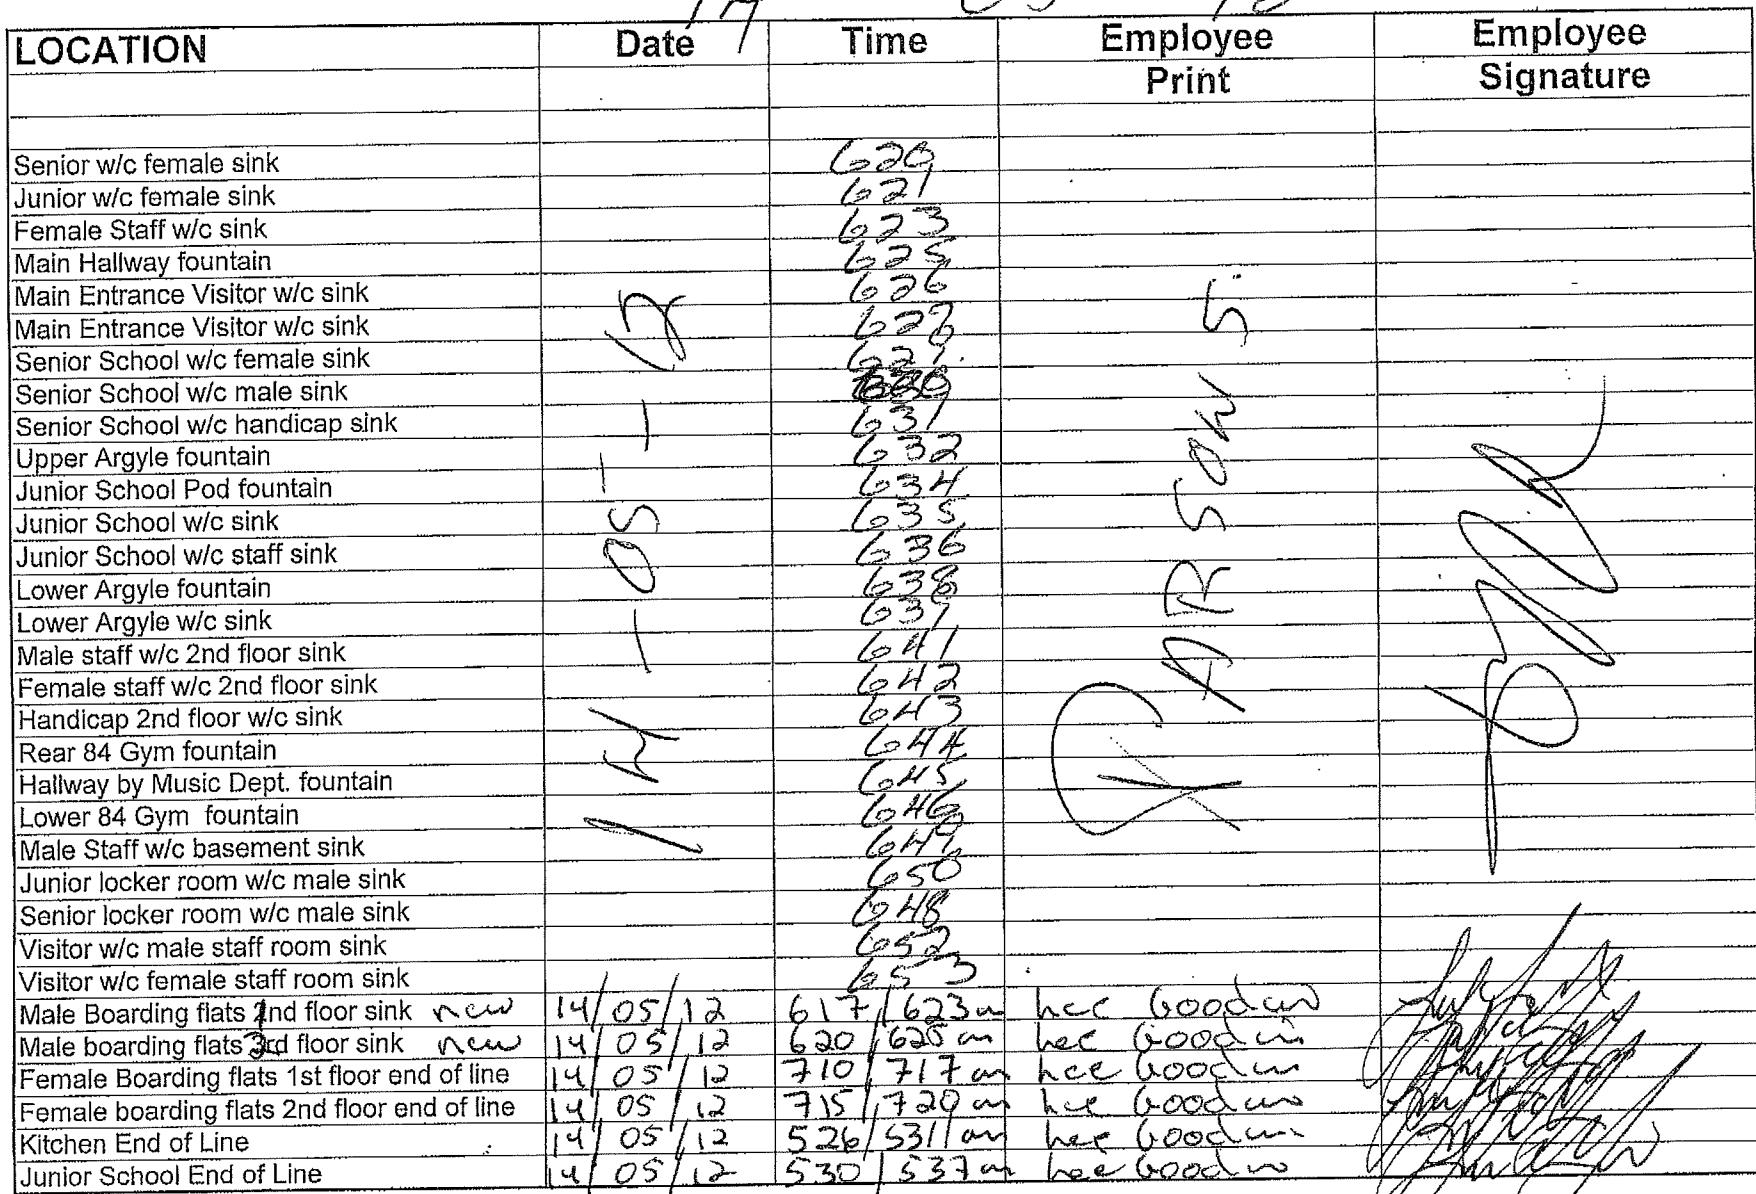 LOCATION Date Time Employee Print Employee Signature
Senior w/c female sink 620
Junior w/c female sink 621
Female Staff w/c sink 623
Main Hallway fountain 625
Main Entrance Visitor w/c sink 626
Main Entrance Visitor w/c sink 628
Senior School w/c female sink 629
Senior School w/c male sink
Senior School w/c handicap sink 631
Upper Argyle fountain 632
Junior School Pod fountain 634
Junior School w/c sink 635
Junior School w/c staff sink 636
Lower Argyle fountain 638
Lower Argyle w/c sink 639
Male staff w/c 2nd floor sink 641
Female staff w/c 2nd floor sink 642
Handicap 2nd floor w/c sink 643
Rear 84 Gym fountain 644
Hallway by Music Dept. fountain 645
Lower 84 Gym fountain 646
Male Staff w/c basement sink 649
Junior locker room w/c male sink 650
Senior locker room w/c male sink 648
Visitor w/c male staff room sink 652
Visitor w/c female staff room sink 653
14-05-12
PARSONS.
Male Boarding flats 2nd floor sink new 14/05/12 617/623am Lee Goodwin
Male boarding flats 3rd floor sink new 14/05/12 620/625am Lee Goodwin
Female Boarding flats 1st floor end of line 14/05/12 710/717am Lee Goodwin
Female boarding flats 2nd floor end of line 14/05/12 715/720am Lee Goodwin
Kitchen End of Line 14/05/12 526/531am Lee Goodwin
Junior School End of Line 14/05/12 530/537am Lee Goodwin